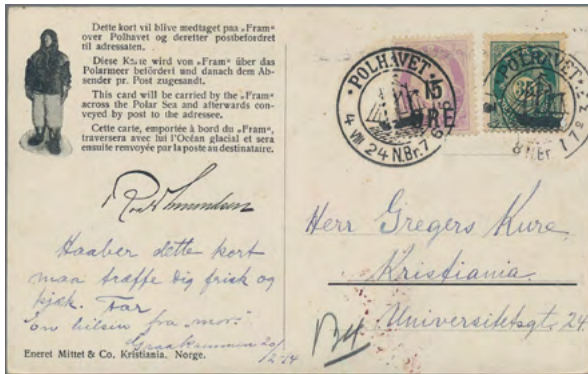 Dette kort vil blive medtaget paa „Fram"
over Polhavet og deretter postbefordret
til adressaten.
Diese Karte wird von „Fram" über das
Polarmeer befördert und danach dem Ab-
sender pr. Post zugesandt.
This card will be carried by the „Fram"
across the Polar Sea and afterwards con-
veyed by post to the adressee.
Cette carte, emportée à bord du „Fram",
traversera avec lui l'Océan glacial et sera
ensuite renvoyée par la poste au destinataire.
Haaber dette kort
maa træffe dig frisk og
kjæk. Far
en hilsen fra mor.
Graakammen 20/
2-14
Eneret Mittet & Co., Kristiania, Norge.
POLHAVET
15
ØRE
4 VIII 24 N.Br. 76
POLHAVET
Herr Gregers Kure
Kristiania.
Universitetsgt. 24.